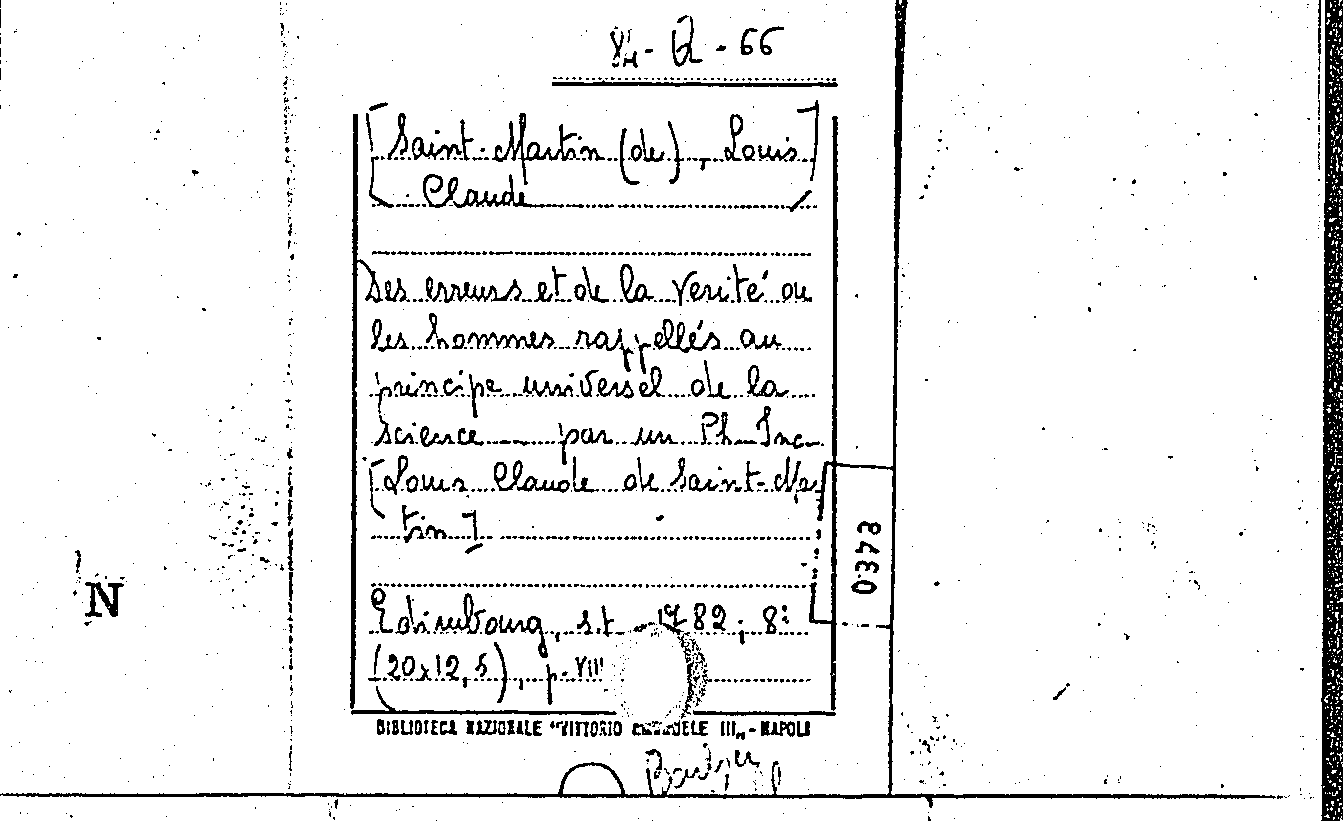 84-Q-66
[Saint-Martin (de), Louis
Claude]
Des erreurs et de la verité ou
les hommes rappellés au
principe universel de la
science __ par un Ph_Inc_
[Louis Claude de Saint-Mar
tin]
0348
N
Edimbourg, s.t. 1782; 8:
(20x12,5), p. VIII
BIBLIOTECA NAZIONALE "VITTORIO EMANUELE III„ - NAPOLI